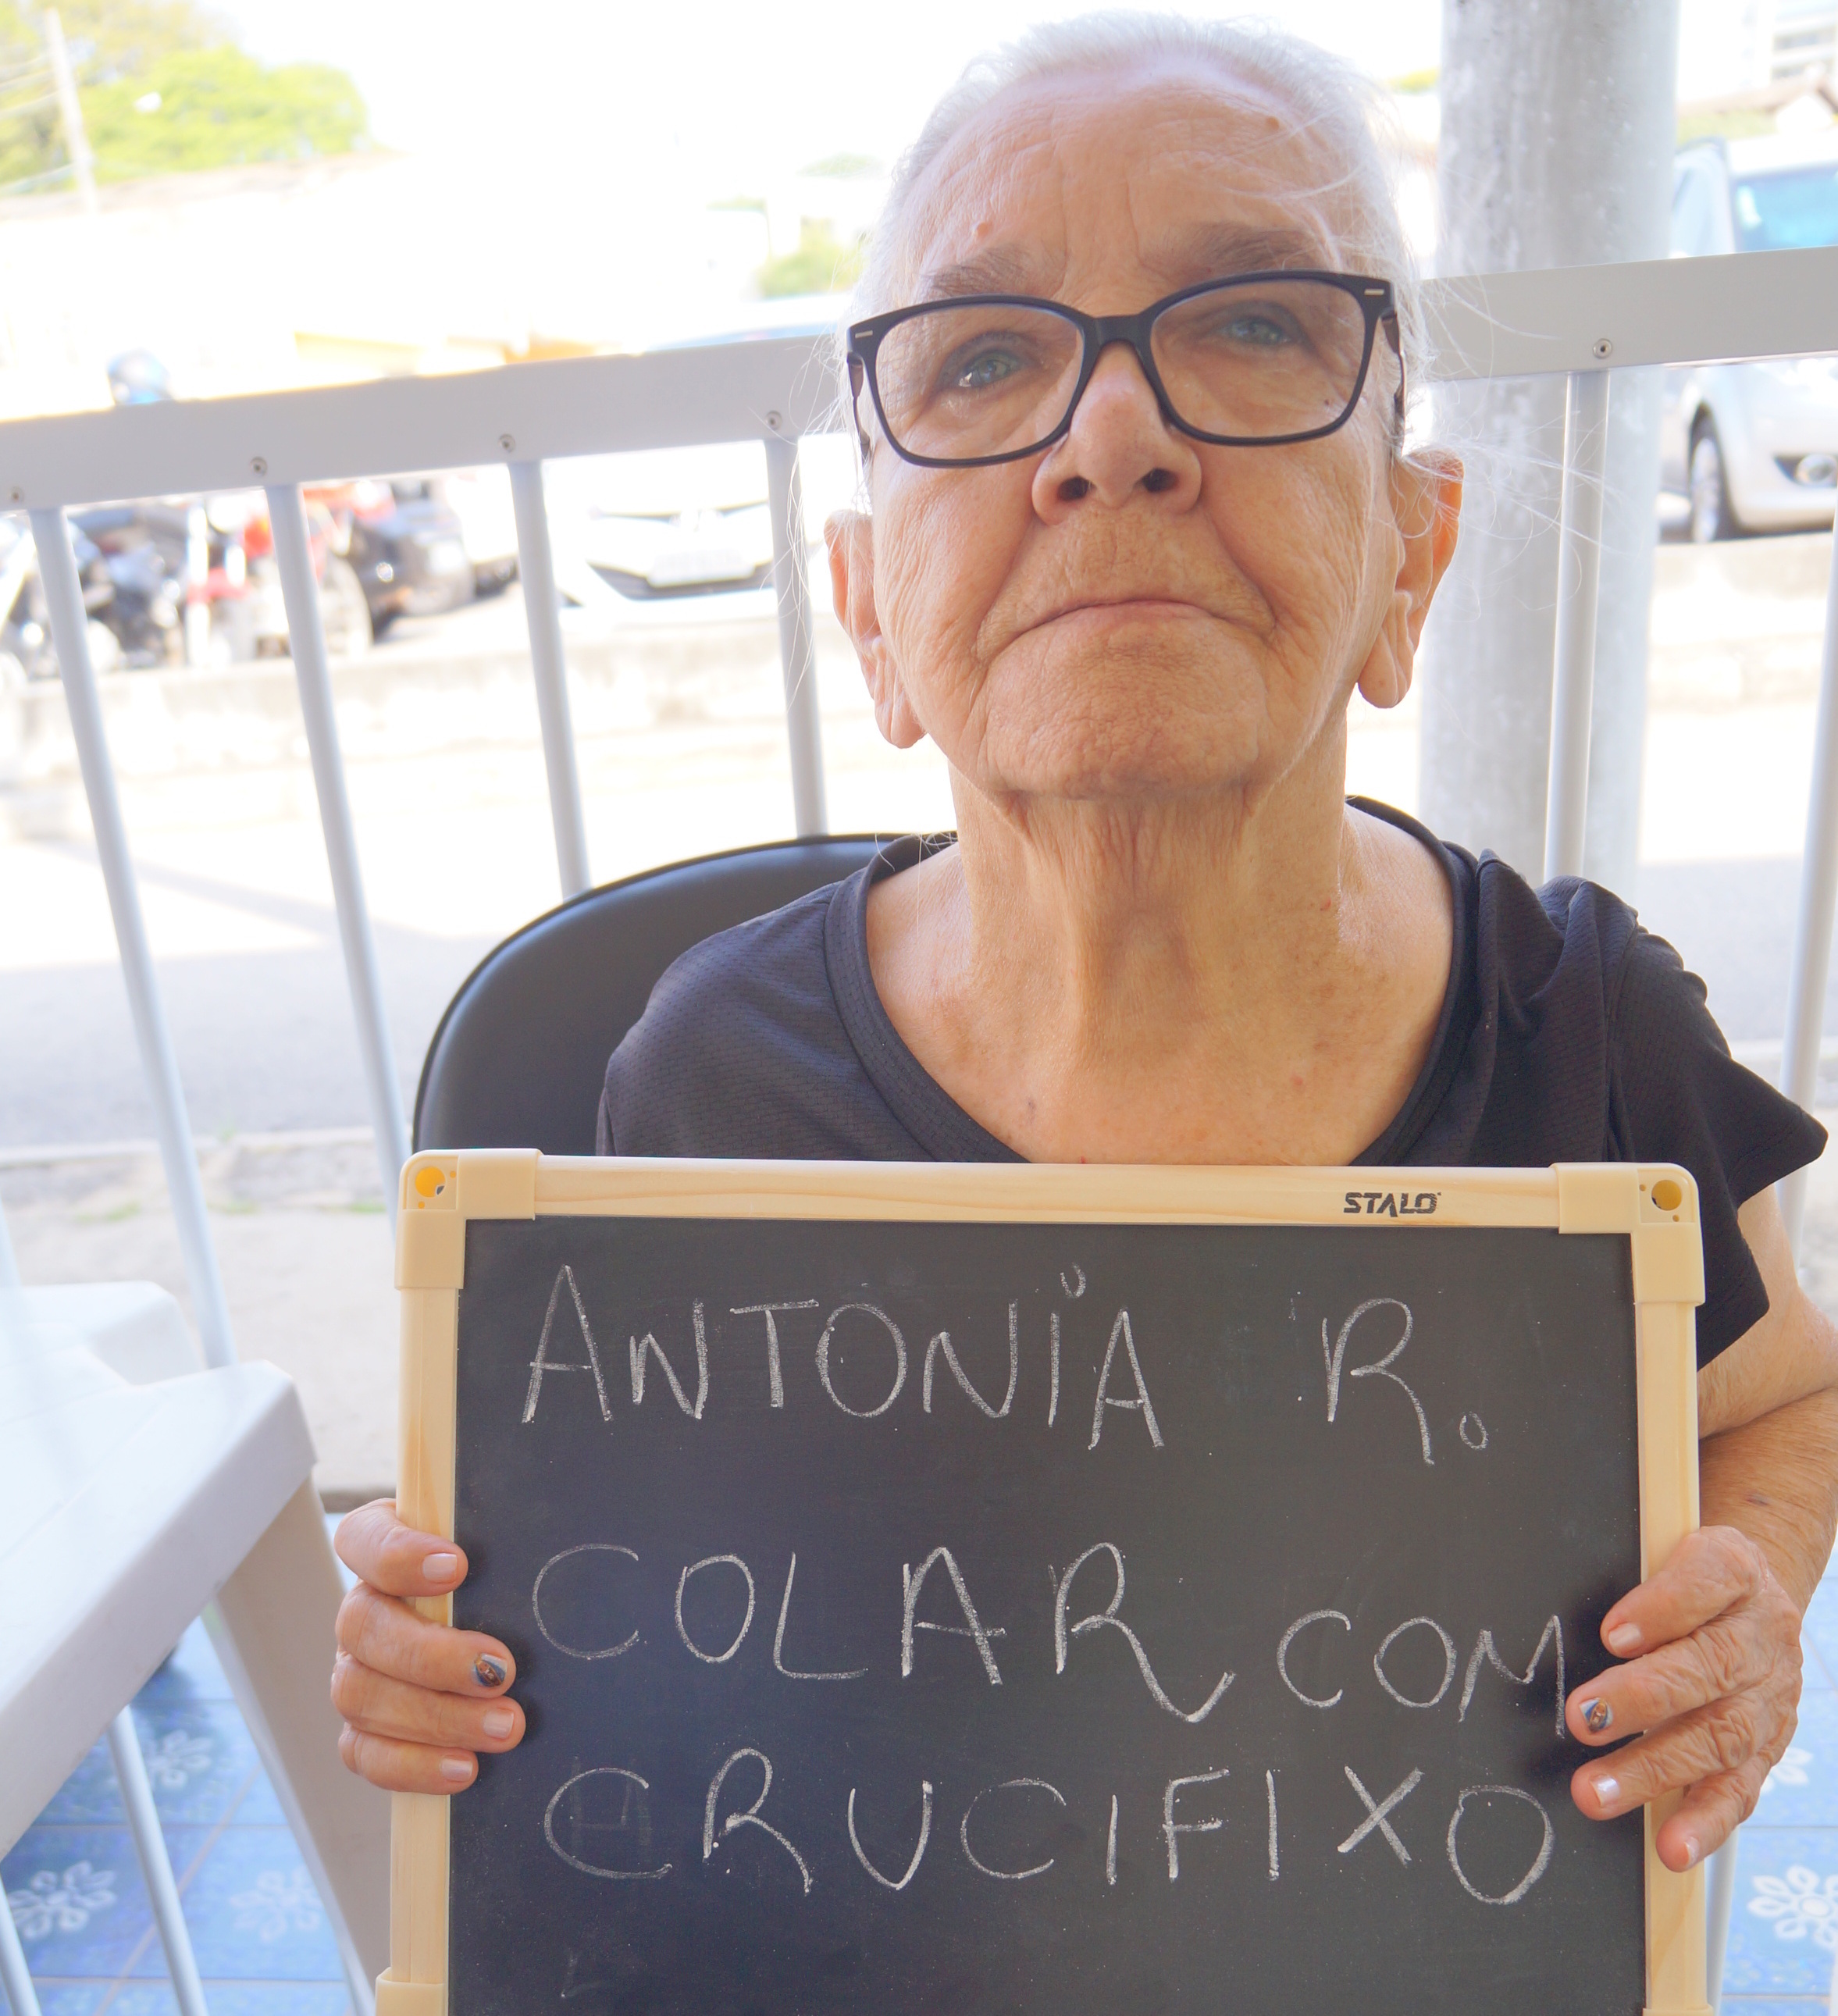 STALO
ANTONIA R.
COLAR COM
CRUCIFIXO